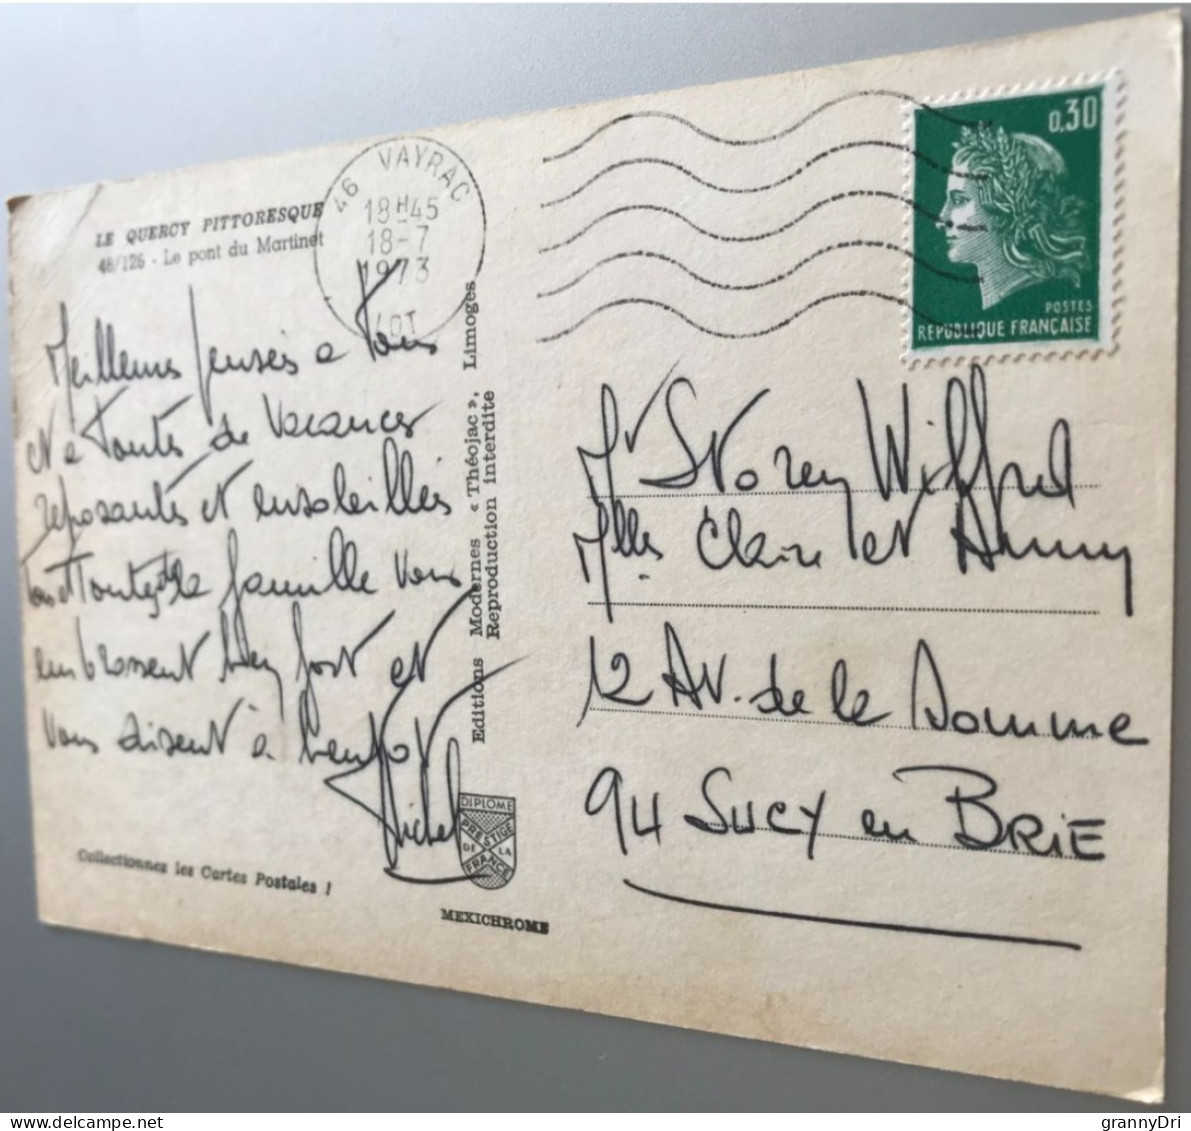 LE QUERCY PITTORESQUE
46/126 - Le pont du Martinet
46 VAYRAC
18H45
18-7
1973
LOT
0,30
POSTES
REPUBLIQUE FRANÇAISE
Meilleures pensées a Tous
et a Toutes de Vacances
reposantes et ensoleillés
Tous et Toutes de la famille Vous
embrassent bien fort et
Vous disent à bientot
Michel
Editions Modernes « Théojac », Limoges
Reproduction interdite
Mr Storey Wilfred
Mlles Claire et Anny
12 Av. de la Somme
94 SUCY en BRIE
DIPLOME
PRESTIGE
DE LA
FRANCE
Collectionnez les Cartes Postales !
MEXICHROME
grannyDri